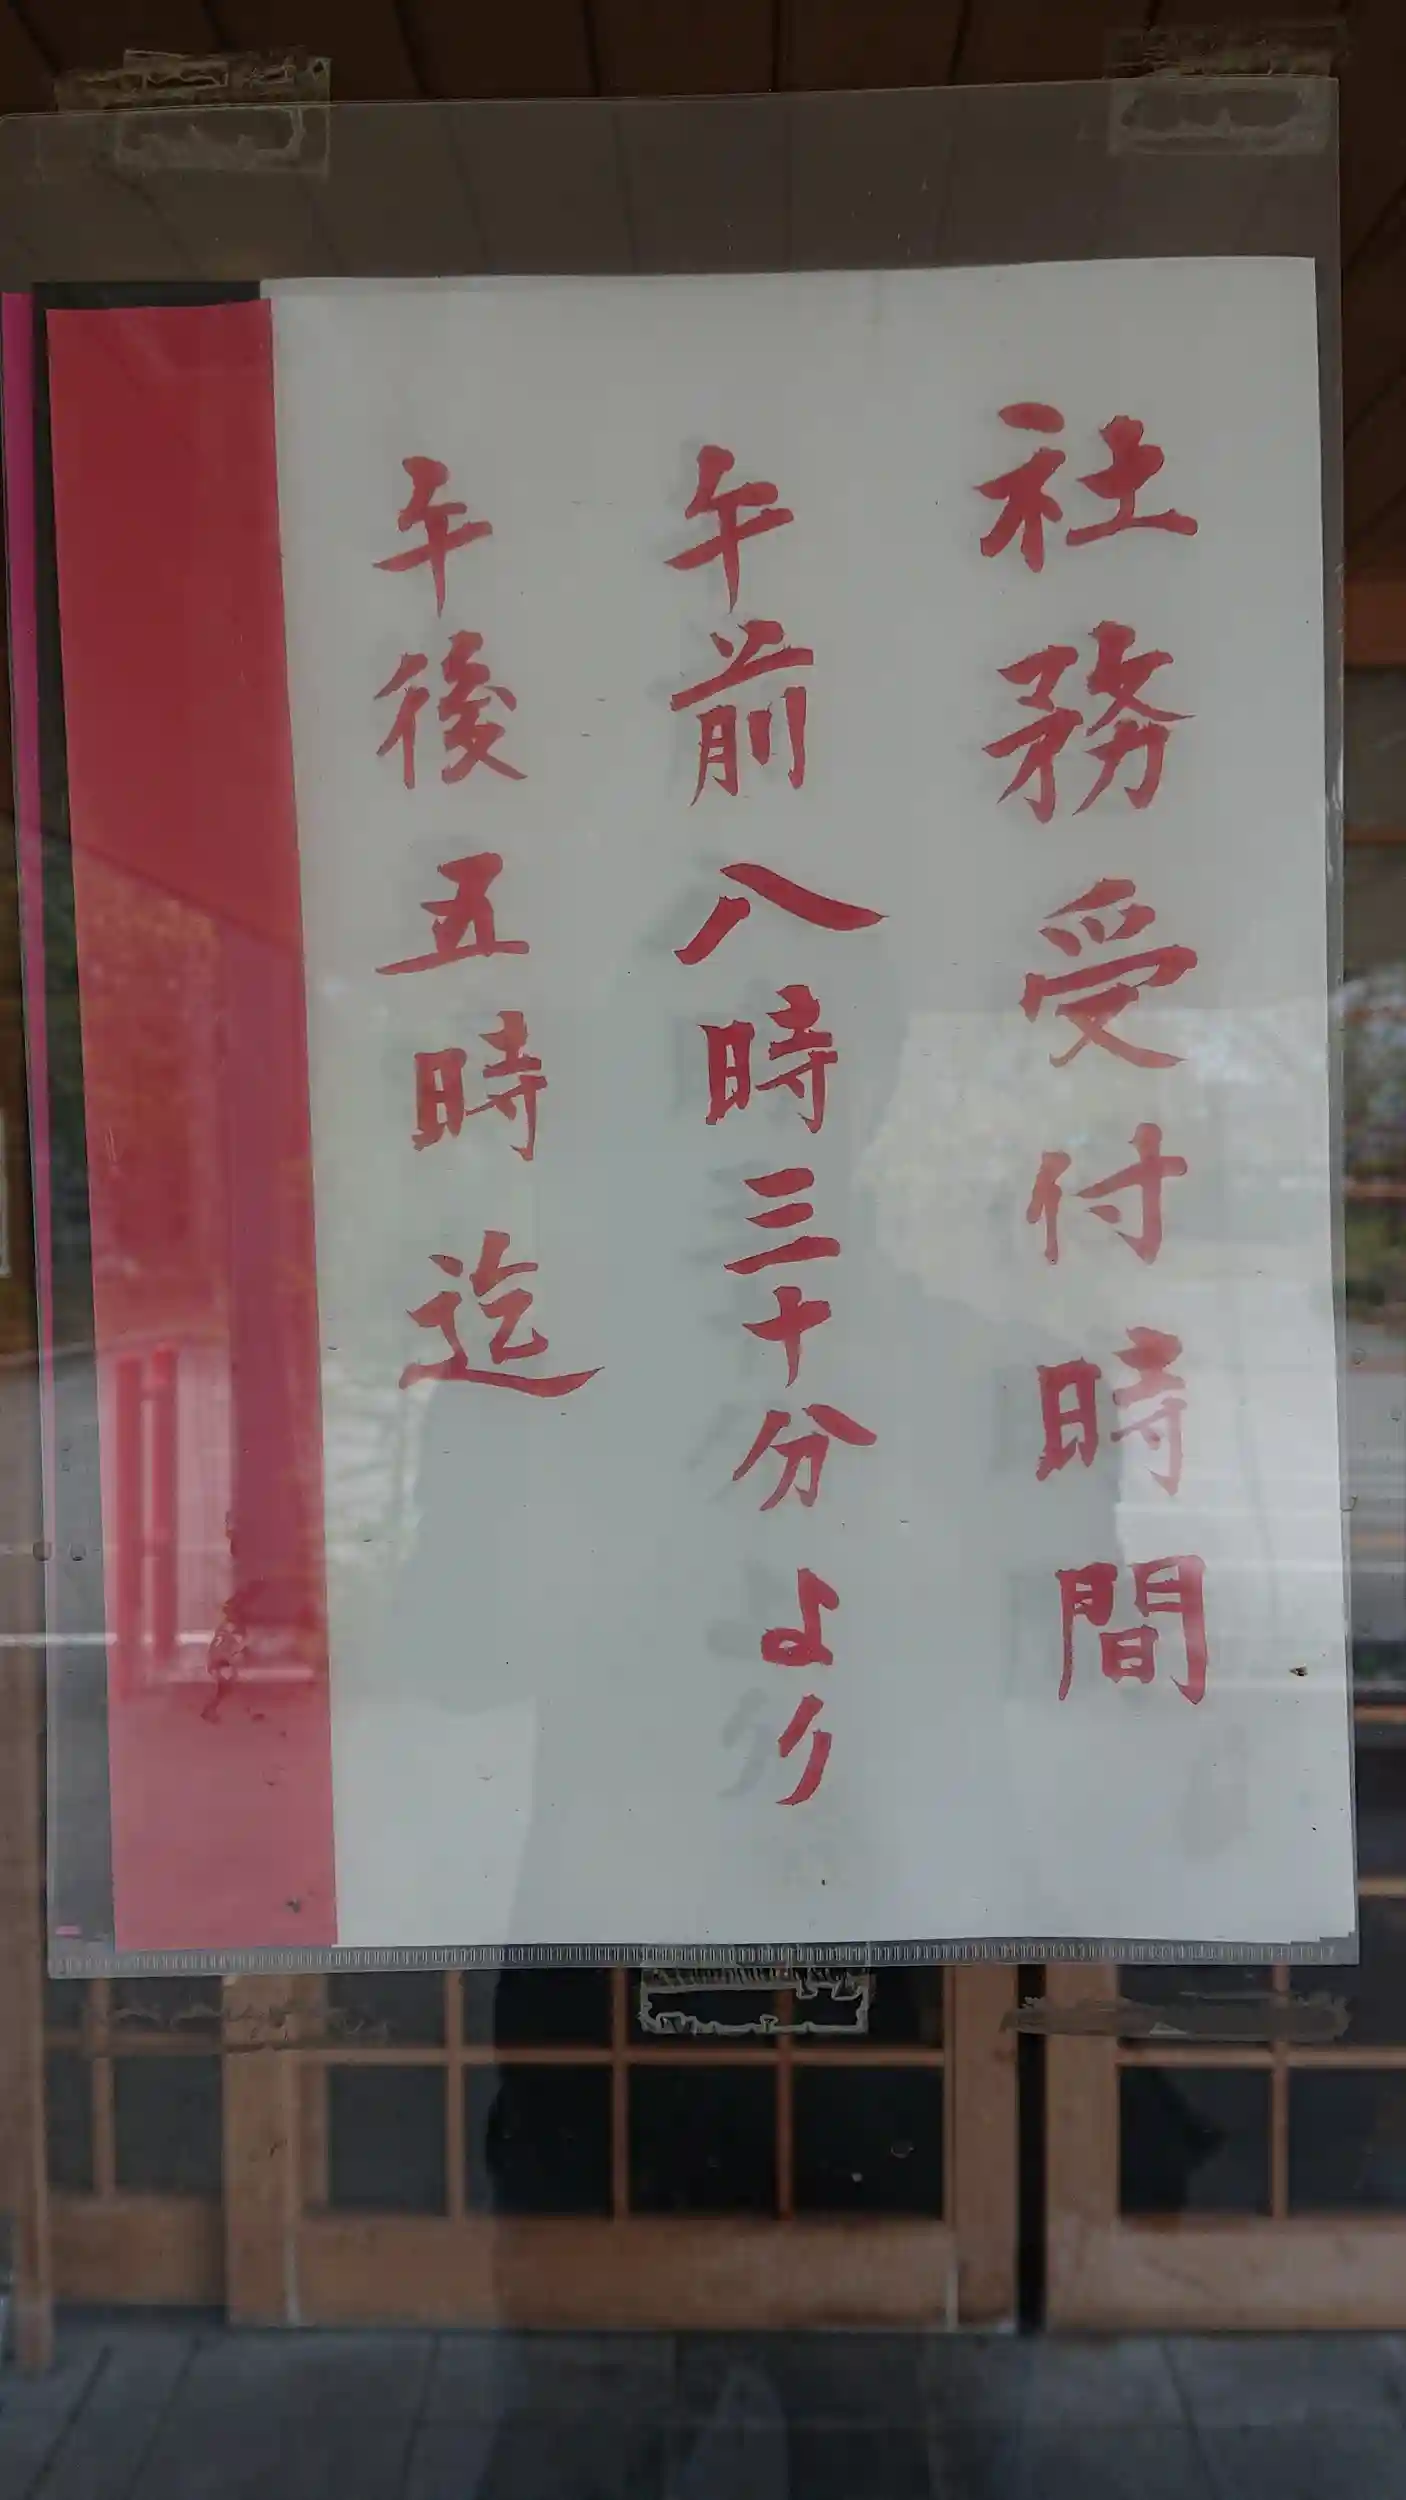 社務受付時間
午前八時三十分より
午後五時迄